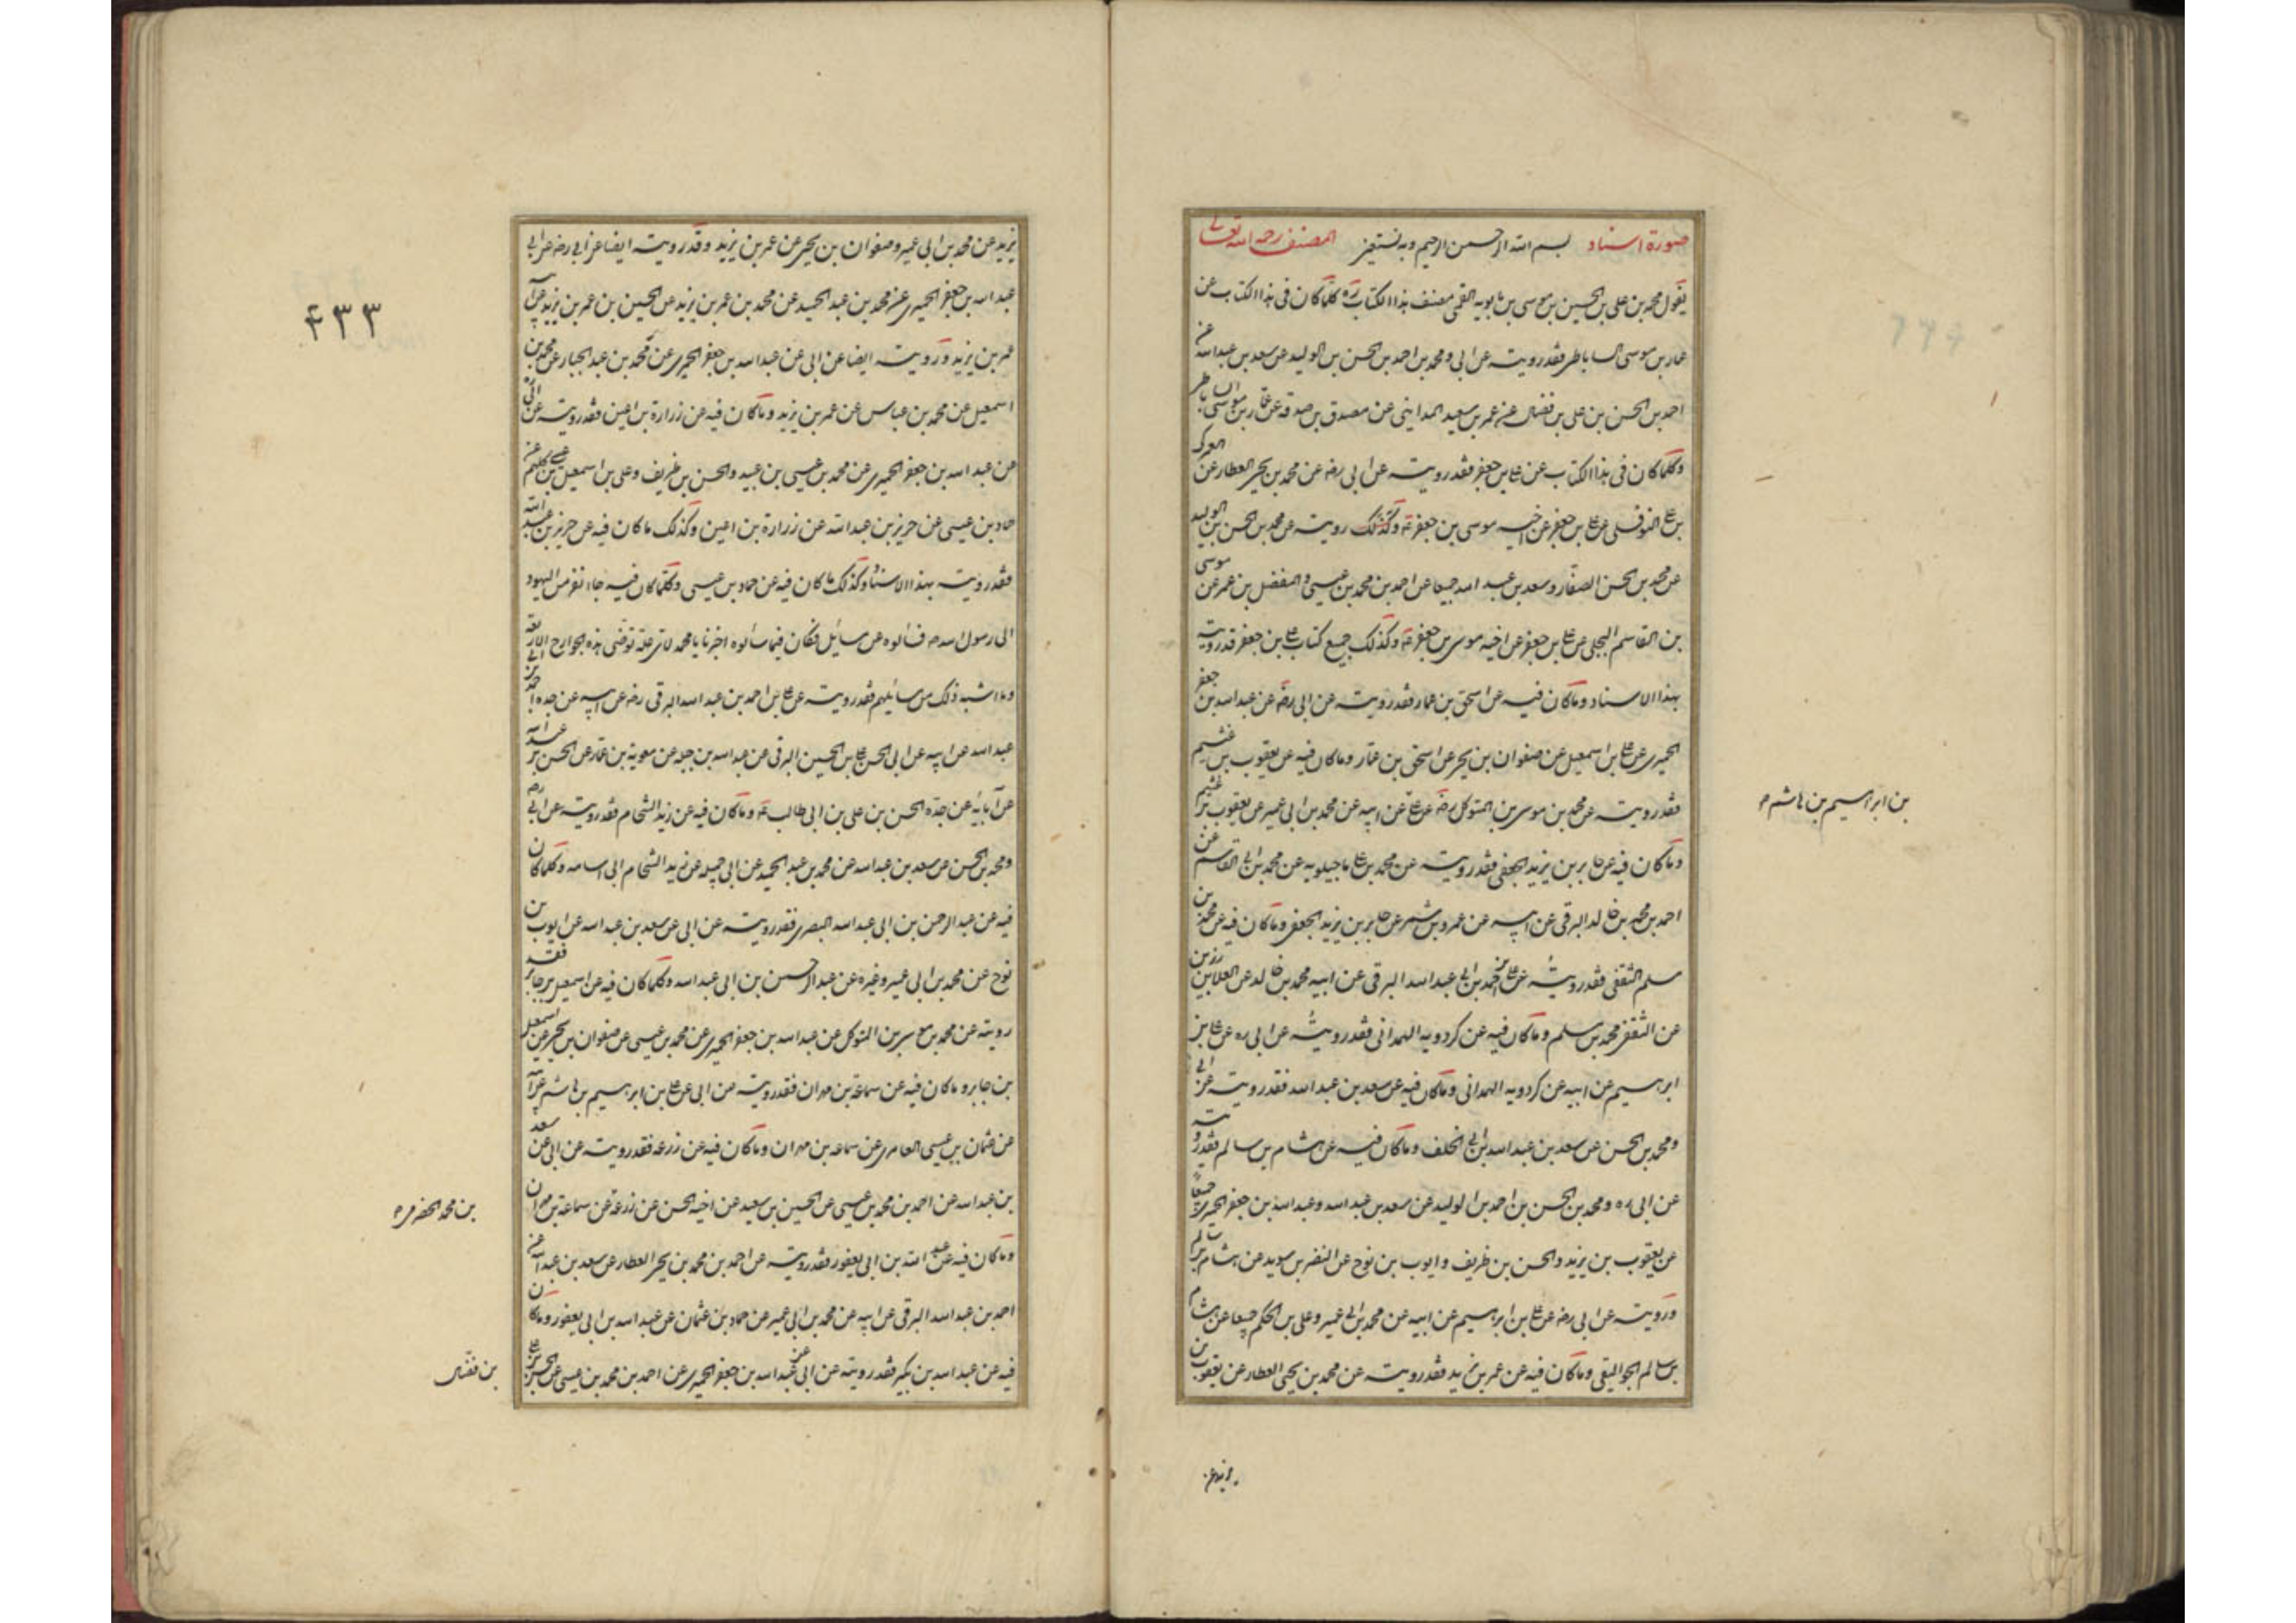 صورة اسناد بسم الله الرحمن الرحیم وبه نستعین المصنف رحمه الله تعالی
یقول محمد بن علی بن الحسین بن موسی بن بابویه القمی مصنف هذا الکتاب ره کلما کان فی هذا الکتاب عن
عمار بن موسی الساباطی فقد رویته عن ابی ومحمد بن احمد بن الحسن بن الولید عن سعد بن عبدالله عن
احمد بن الحسن بن علی بن فضال عن عمر بن سعید المداینی عن مصدق بن صدقة عن عمار بن موسی الساباطی
وکلما کان فی هذا الکتاب عن علی بن جعفر فقد رویته عن ابی رضه عن محمد بن یحیی العطار عن العمرکی
بن علی النوفلی عن علی بن جعفر عن اخیه موسی بن جعفر ع وکذلک رویته عن محمد بن الحسن بن الولید
عن محمد بن الحسن الصفار وسعد بن عبد الله جمیعا عن احمد بن محمد بن عیسی والمفضل بن عمر عن موسی
بن القاسم البجلی عن علی بن جعفر عن اخیه موسی بن جعفر ع وکذلک جمیع کتاب علی بن جعفر فقد رویته
بهذا الاسناد وماکان فیه عن اسحق بن عمار فقد رویته عن ابی رضه عن عبدالله بن جعفر
الحمیری عن علی بن اسمعیل عن صفوان بن یحیی عن اسحق بن عمار وماکان فیه عن یعقوب بن عثیم
فقد رویته عن محمد بن موسی بن المتوکل رضه عن علی عن ابیه عن محمد بن ابی عمیر عن یعقوب بن عثیم
بن ابراهیم بن هاشم
وماکان فیه عن جابر بن یزید الجعفی فقد رویته عن محمد بن علی ماجیلویه عن محمد بن ابی القاسم عن
احمد بن محمد بن خالد البرقی عن ابیه عن عمرو بن شمر عن جابر بن یزید الجعفی وماکان فیه عن محمد بن
مسلم الثقفی فقد رویته عن علی بن احمد بن ابی عبدالله البرقی عن ابیه محمد بن خالد عن العلا بن رزین
عن الثقفی محمد بن مسلم وماکان فیه عن کردویه الهمدانی فقد رویته عن ابی ره عن علی بن
ابرهیم عن ابیه عن کردویه الهمدانی وماکان فیه عن سعد بن عبدالله فقد رویته عن ابی
ومحمد بن الحسن عن سعد بن عبدالله بن ابی الخلف وماکان فیه عن هشام بن سالم فقد رویته
عن ابی ره ومحمد بن الحسن بن احمد بن الولید عن سعد بن عبدالله وعبدالله بن جعفر الحمیری جمیعا
عن یعقوب بن یزید والحسن بن ظریف وایوب بن نوح عن النضر بن سوید عن هشام بن سالم
ورویته عن ابی رضه عن علی بن ابرهیم عن ابیه عن محمد بن ابی عمیر وعلی بن الحکم جمیعا عن هشام
بن سالم الجوالیقی وماکان فیه عن عمر بن یزید فقد رویته عن محمد بن یحیی العطار عن یعقوب بن
یزید عن
۴۳۳
یزید عن محمد بن ابی عمیر وصفوان بن یحیی عن عمر بن یزید وقد رویته ایضا عن ابی رضه عن ابی
عبدالله بن جعفر الحمیری عن محمد بن عبد الحمید عن محمد بن عمر بن یزید عن الحسین بن عمر بن یزید عن ابیه
عمر بن یزید ورویته ایضا عن ابی عن عبدالله بن جعفر الحمیری عن محمد بن عبد الجبار عن محمد بن
اسمعیل عن محمد بن عباس عن عمر بن یزید وماکان فیه عن زرارة بن اعین فقد رویته عن ابی ره
عن عبدالله بن جعفر الحمیری عن محمد بن عیسی بن عبید والحسن بن ظریف وعلی بن اسمعیل بن عیسی کلهم عن
حماد بن عیسی عن حریز بن عبدالله عن زرارة بن اعین وکذلک ماکان فیه عن حریز بن عبد الله
فقد رویته بهذا الاسناد وکذلک ماکان فیه عن حماد بن عیسی وکلما کان فیه جاء نفر من الیهود
الی رسول الله ص فسألوه عن مسایل فکان فیما سألوه اخبرنا یا محمد لای علة توضی هذه الجوارح الاربعة
وما اشبه ذلک من مسایلهم فقد رویته عن علی بن احمد بن عبدالله البرقی رضه عن ابیه عن جده احمد بن ابی
عبدالله عن ابیه عن ابی الحسن علی بن الحسین البرقی عن عبدالله بن جبلة عن معویة بن عمار عن الحسن بن عبدالله
عن آبائه عن جده الحسن بن علی بن ابی طالب ع وماکان فیه عن زید الشحام فقد رویته عن ابی ره
ومحمد بن الحسن عن سعد بن عبدالله عن محمد بن عبد الحمید عن ابی جمیله عن زید الشحام ابی اسامه وکلما کان
فیه عن عبد الرحمن بن ابی عبدالله البصری فقد رویته عن ابی عن سعد بن عبدالله عن ایوب بن
نوح عن محمد بن ابی عمیر وغیره عن عبد الرحمن بن ابی عبدالله وکلما کان فیه عن اسمعیل بن جابر فقد
رویته عن محمد بن موسی بن المتوکل عن عبدالله بن جعفر الحمیری عن محمد بن عیسی عن صفوان بن یحیی عن اسمعیل
بن جابر وماکان فیه عن سماعة بن مهران فقد رویته عن ابی عن علی بن ابرهیم بن هاشم عن ابیه
عن عثمان بن عیسی العامری عن سماعه بن مهران وماکان فیه عن زرعة فقد رویته عن ابی عن سعد
بن عبدالله عن احمد بن محمد بن عیسی عن الحسین بن سعید عن اخیه الحسن عن زرعة عن سماعة بن مهران
بن محمد الحضرمی
وماکان فیه عن عبدالله بن ابی یعفور فقد رویته عن احمد بن محمد بن یحیی العطار عن سعد بن عبدالله عن
احمد بن عبدالله البرقی عن ابیه عن محمد بن ابی عمیر عن حماد بن عثمان عن عبدالله بن ابی یعفور وماکان
فیه عن عبدالله بن بکیر فقد رویته عن ابی عن عبدالله بن جعفر الحمیری عن احمد بن محمد بن عیسی عن الحسن بن علی
بن فضال